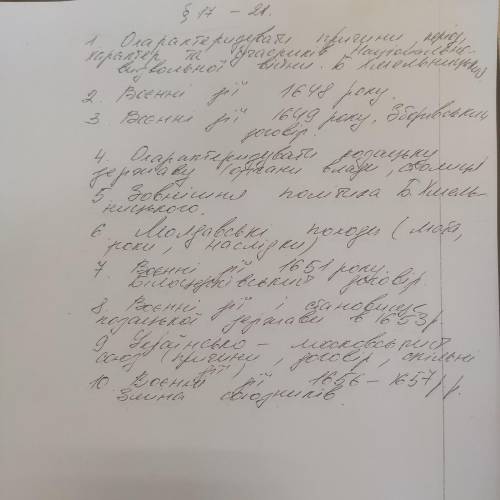 § 17 – 21.
1. Охарактеризувати причини, період,
характер та учасників Національно-
визвольної війни. Б. Хмельницький
2. Воєнні дії 1648 року.
3. Воєнні дії 1649 року. Зборівський
договір.
4. Охарактеризувати козацьку
державу (органи влади, столиця
5. Зовнішня політика Б. Хмель-
ницького.
6. Молдавські походи (мета,
роки, наслідки)
7. Воєнні дії 1651 року.
Білоцерківський договір.
8. Воєнні дії і становище
козацької держави в 1653 р.
9. Українсько – московський
союз (причини, договір, спільні
дії)
10. Воєнні дії 1656 – 1657 р.р.
Зміна союзників.